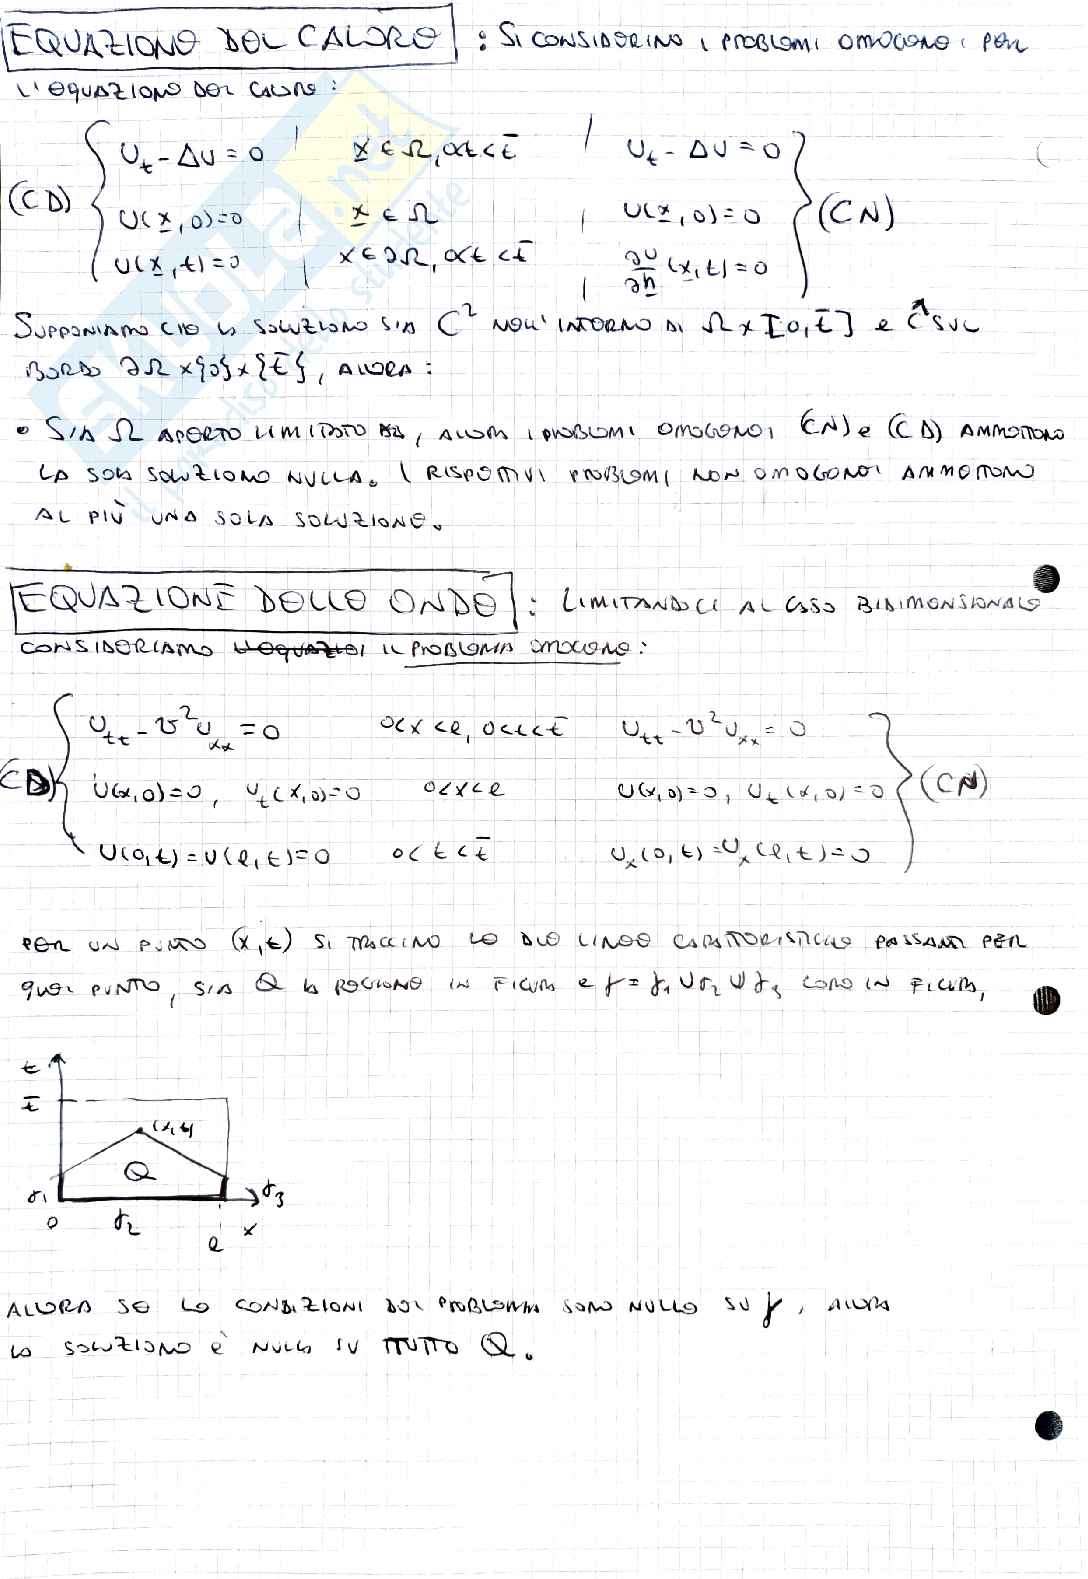 EQUAZIONE DEL CALORE : SI CONSIDERINO I PROBLEMI OMOGENEI PER
L'EQUAZIONE DEL CALORE :
(CD) { U_t - ΔU = 0 | x ∈ Ω, 0<t<t̄ | U_t - ΔU = 0 } (CN)
U(x, 0)=0 | x ∈ Ω | U(x, 0)=0
U(x, t)=0 | x ∈ ∂Ω, 0<t<t̄ | ∂U/∂n (x, t)=0
SUPPONIAMO CHE LA SOLUZIONE SIA C² NELL'INTORNO DI Ω x [0, t̄] E C¹ SUL
BORDO ∂Ω x{0}x{t̄}, ALLORA :
• SIA Ω APERTO LIMITATO, ALLORA I PROBLEMI OMOGENEI (CN) e (CD) AMMETTONO
LA SOLA SOLUZIONE NULLA. I RISPETTIVI PROBLEMI NON OMOGENEI AMMETTONO
AL PIÙ UNA SOLA SOLUZIONE.
EQUAZIONE DELLE ONDE : LIMITANDOCI AL CASO BIDIMENSIONALE
CONSIDERIAMO IL PROBLEMA OMOGENEO :
(CD) { U_tt - v² U_xx = 0 0<x<l, 0<t<t̄ U_tt - v² U_xx = 0 } (CN)
U(x,0)=0, U_t(x,0)=0 0<x<l U(x,0)=0, U_t(x,0)=0
U(0,t)=U(l,t)=0 0<t<t̄ U_x(0,t)=U_x(l,t)=0
PER UN PUNTO (x,t) SI TRACCINO LE DUE LINEE CARATTERISTICHE PASSANTI PER
QUEL PUNTO, SIA Q LA REGIONE IN FIGURA E γ = γ1 ∪ γ2 ∪ γ3 COME IN FIGURA,
t
t̄
(x,t)
Q
γ1
γ3
0
γ2
l
x
ALLORA SE LE CONDIZIONI DEL PROBLEMA SONO NULLE SU γ, ALLORA
LA SOLUZIONE È NULLA SU TUTTO Q.
SKUOLA.net
il paradiso dello studente